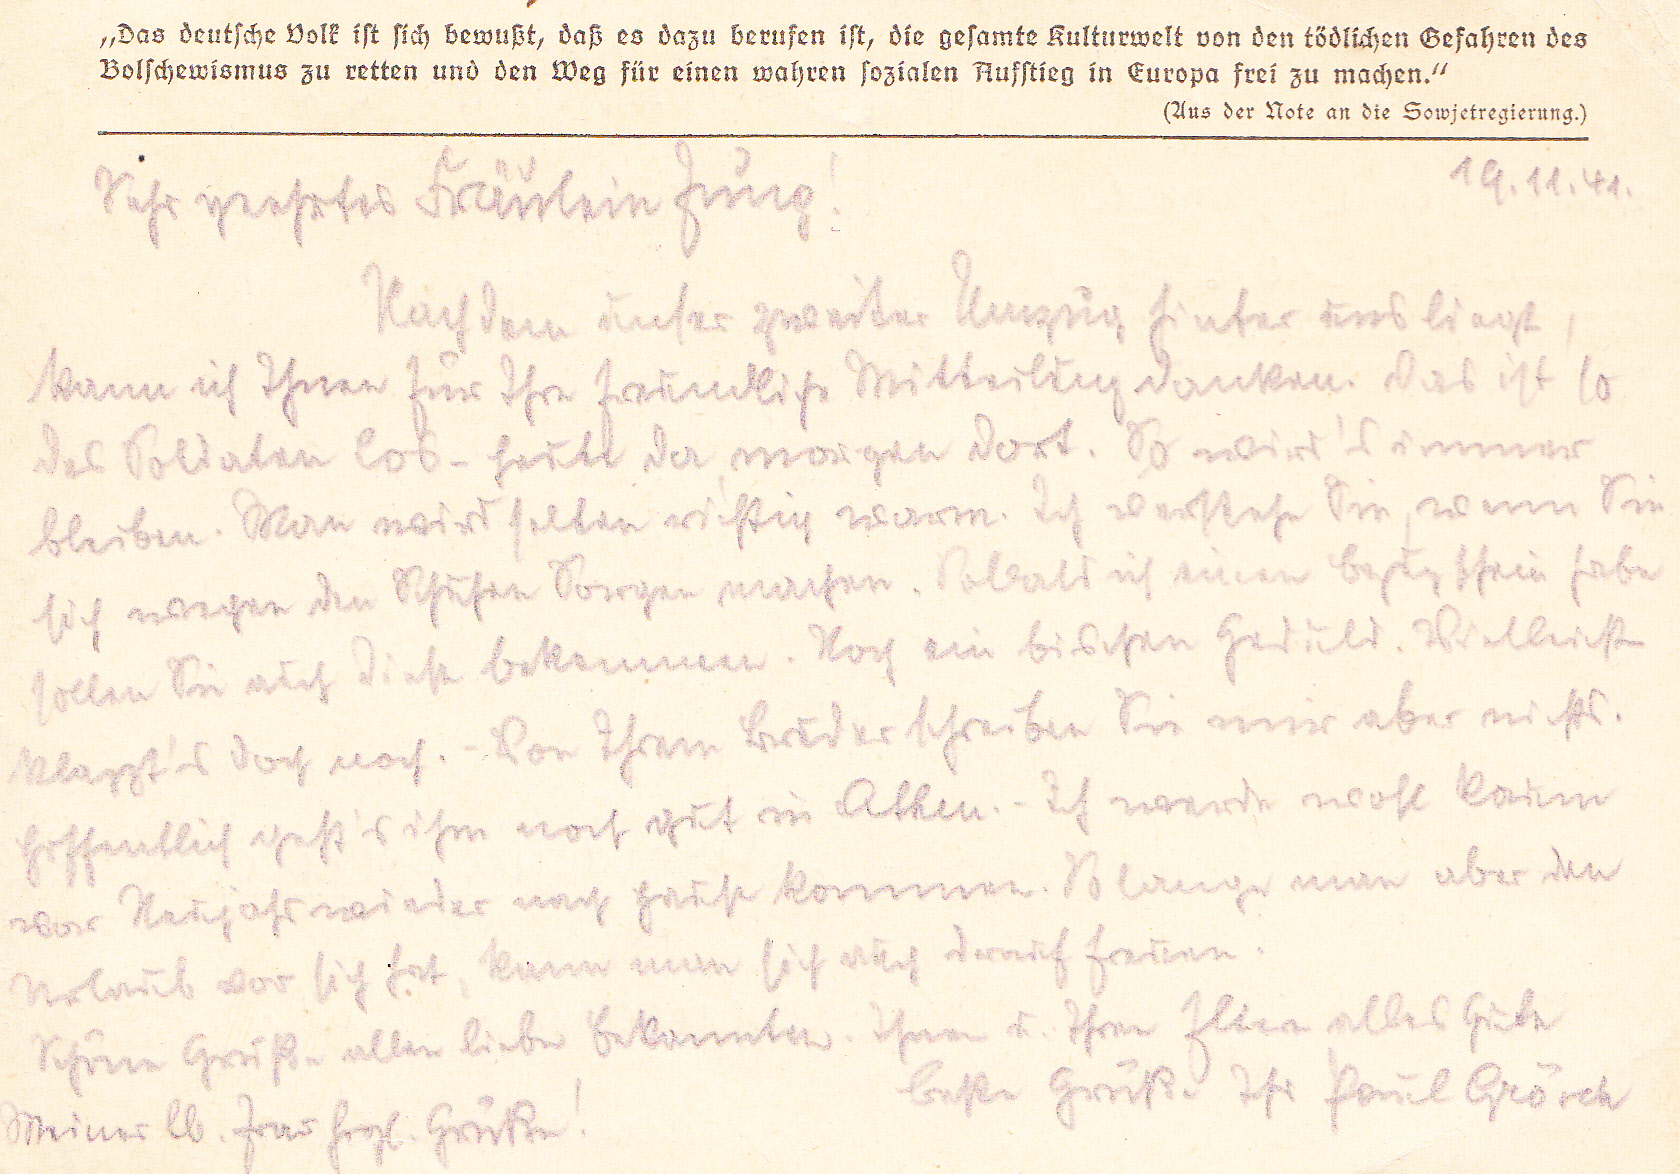 „Das deutsche Volk ist sich bewußt, daß es dazu berufen ist, die gesamte Kulturwelt von den tödlichen Gefahren des
Bolschewismus zu retten und den Weg für einen wahren sozialen Aufstieg in Europa frei zu machen.“
(Aus der Note an die Sowjetregierung.)
19.11.41.
Sehr geehrtes Fräulein Jung!
Nachdem unser zweiter Umzug hinter uns liegt,
kann ich Ihnen für Ihre freundliche Mitteilung danken. Das ist so
des Soldaten Los – heute da, morgen dort. So wird's immer
bleiben. Man wird selten richtig warm. Ich verstehe Sie, wenn Sie
sich wegen den Schuhen Sorgen machen. Sobald ich einen Bezugschein habe
sollen Sie auch diese bekommen. Noch ein bischen Geduld. Vielleicht
klappt's doch noch. – Von Ihrem Bruder schreiben Sie mir aber nichts.
Hoffentlich geht's ihm noch gut in . – Ich werde wohl kaum
vor Neujahr wieder nach Hause kommen. Solange man aber den
Urlaub vor sich hat, kann man sich auch darauf freuen.
Schöne Grüße allen lieben Bekannten. Ihnen u. Ihren Eltern alles Gute
beste Grüße Ihr Paul
Meiner lb. Frau herzl. Grüße!